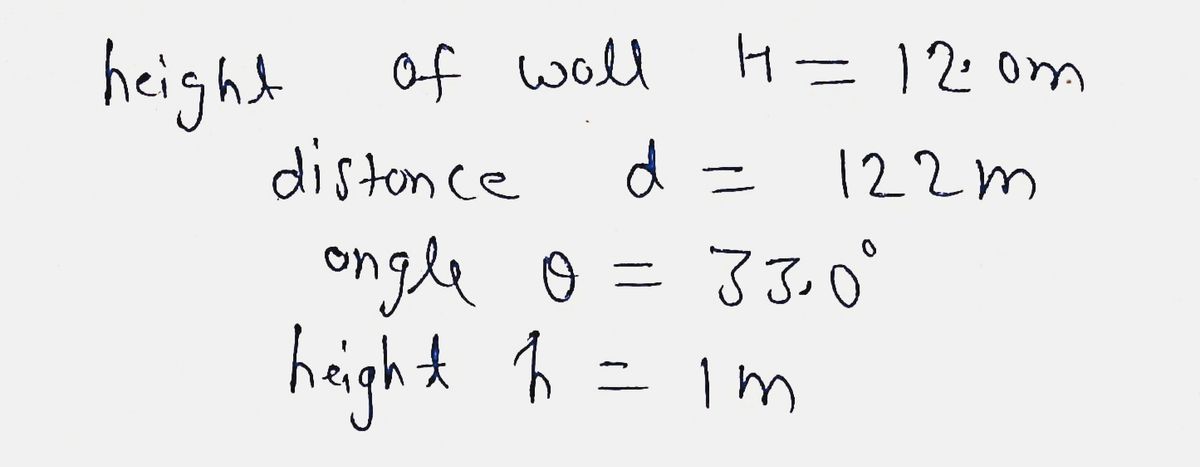 height of wall H = 12.0m
distance d = 122m
angle θ = 33.0°
height h = 1m